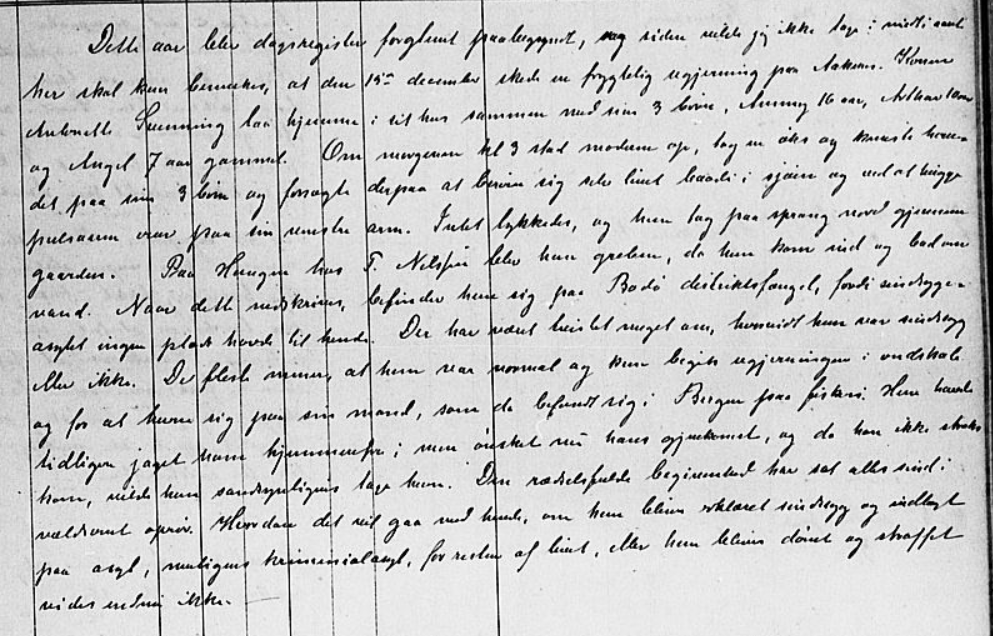 Dette aar blev dagsregister forglemt paabegyndt, og siden vilde jeg ikke tage i midti samt
her skal kun bemerkes, at den 15de december skede en frygtelig ugjerning paa Aakernes. Konen
Antonette Sunning laa hjemme i sit hus sammen med sine 3 børn, Aunny 16 aar, Arthur
og Angel 7 aar gammel. Om morgenen kl 3 stod moderen op, tog en øks og knuste hove-
det paa sine 3 børn og forsøgte derpaa at berøve sig selv livet baade i sjøen og ved at hugge
pulsaaren over paa sin venstre arm. Intet lykkedes, og hun tog paa sprang nord gjennem
gaarden. Paa Haugen hos T. Nilssen blev hun greben, da hun kom ind og bad om
vand. Naar dette nedskrives, befinder hun sig paa Bodø distriktsfængsel, fordi sindssyge-
asylet ingen plads havde til hende. Der har været tvistet meget om, hvorvidt hun var sindssyg
eller ikke. De fleste mener, at hun var normal og kun begik ugjerningen i ondskab
og for at hevne sig paa sin mand, som da befandt sig i Bergen paa fiskeri. Hun havde
tidligere jaget ham hjemmenfra; men ønsket nu hans gjenkomst, og da han ikke straks
kom, vilde hun sandsynligvis tage hevn. Den rædselsfulde begivenhed har sat alles sind i
voldsomt oprør. Hvordan det vil gaa med hende, om hun bliver erklæret sindssyg og indlagt
paa asyl, muligens kriminalasyl, for resten af livet, eller hun bliver dømt og straffet
vides endnu ikke.